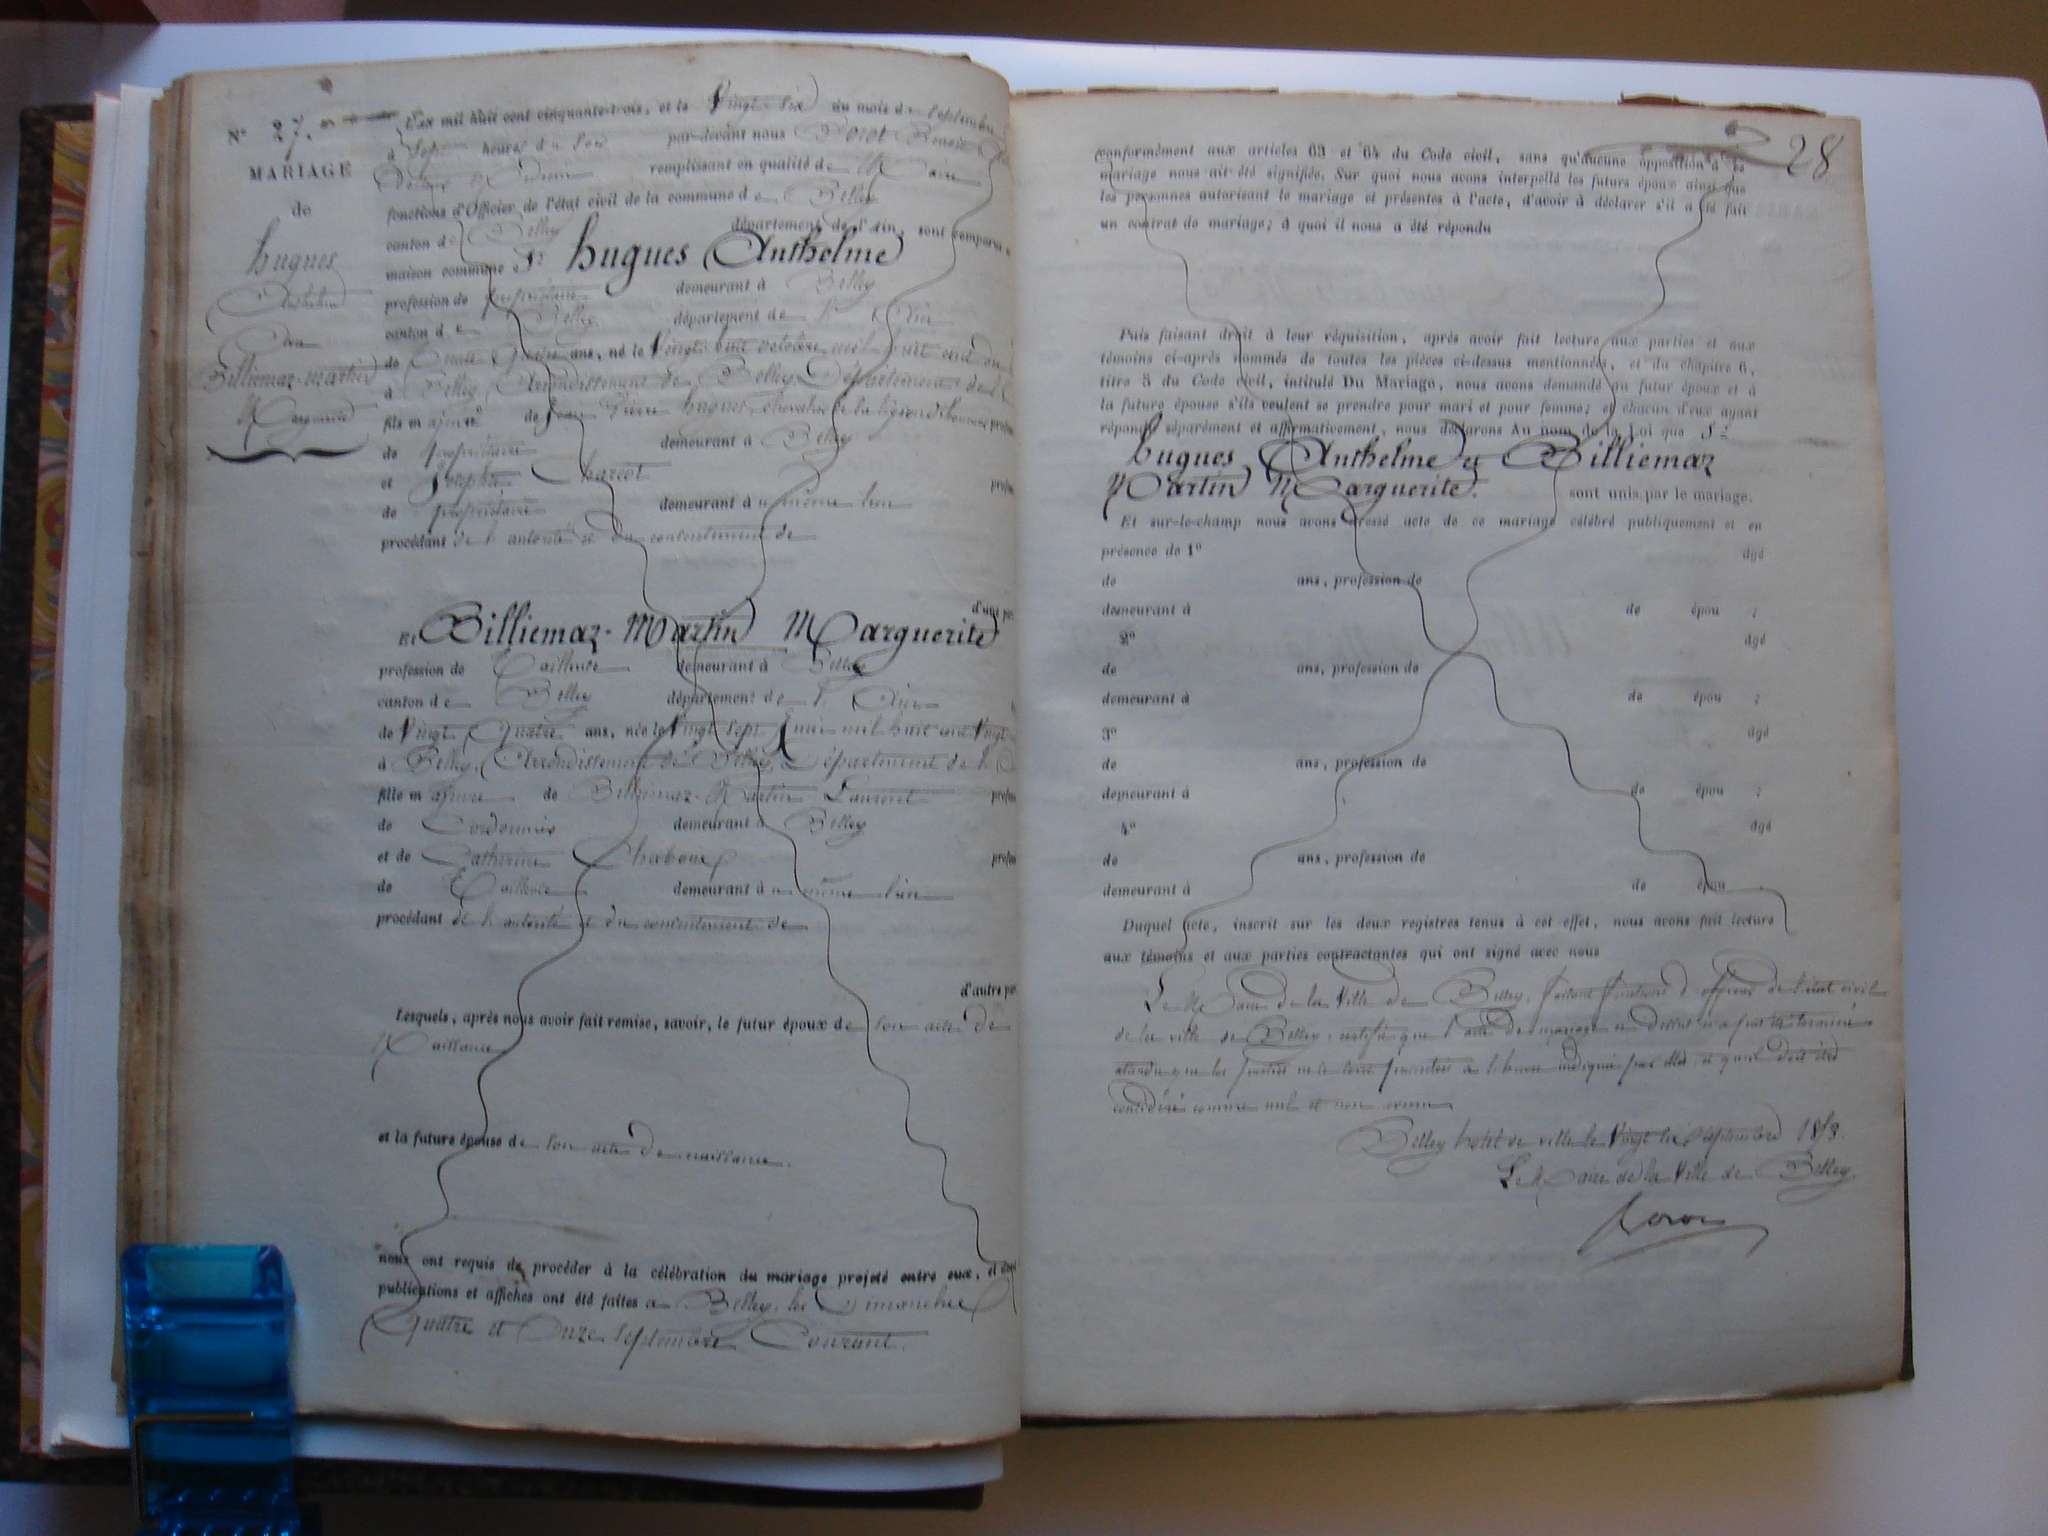 N° 27.
MARIAGE
de
Hugues
Anthelme
Billiemaz-Martin
Marguerite
L'an mil huit cent cinquante-trois, et le Vingt Six du mois de Septembre
à Sept heures du Soir par-devant nous
remplissant en qualité de Maire
fonctions d'Officier de l'état civil de la commune de Belley
canton de Belley département de l'Ain, sont comparus
maison commune Sr Hugues Anthelme
profession de propriétaire demeurant à Belley
canton de Belley département de l'Ain
de ans, né le Vingt huit octobre mil huit cent
à Belley, Arrondissement de Belley, Département de l'
fils majeur de Jean Pierre Hugues, chevalier de la légion d'honneur
de propriétaire demeurant à Belley
et Charcot
de propriétaire demeurant au même lieu
procédant de l'autorité et du consentement de
d'une par
Et Billiemaz-Martin Marguerite
profession de Tailleuse demeurant à Belley
canton de Belley département de l'Ain
de Vingt Quatre ans, née le Vingt Sept mil huit cent Vingt
à Belley, Arrondissement de Belley, Département de l'
fille majeure de Billiemaz-Martin Laurent profes
de Cordonnier demeurant à Belley
et de Catherine Chaboux profes
de Tailleuse demeurant au même lieu
procédant de l'autorité et du consentement de
d'autre par
Lesquels, après nous avoir fait remise, savoir, le futur époux de son acte de
Naissance
et la future épouse de son acte de naissance.
nous ont requis de procéder à la célébration du mariage projeté entre eux, et dont
publications et affiches ont été faites à Belley, les Dimanches
Quatre et Onze Septembre Courant.
28
conformément aux articles 63 et 64 du Code civil, sans qu'aucune opposition à ce
mariage nous ait été signifiée. Sur quoi nous avons interpellé les futurs époux ainsi que
les personnes autorisant le mariage et présentes à l'acte, d'avoir à déclarer s'il a été fait
un contrat de mariage; à quoi il nous a été répondu
Puis faisant droit à leur réquisition, après avoir fait lecture aux parties et aux
témoins ci-après nommés de toutes les pièces ci-dessus mentionnées, et du chapitre 6,
titre 5 du Code civil, intitulé Du Mariage, nous avons demandé au futur époux et à
la future épouse s'ils veulent se prendre pour mari et pour femme; et chacun d'eux ayant
répondu séparément et affirmativement, nous déclarons Au nom de la Loi que Sr
Hugues Anthelme et Billiemaz
Martin Marguerite. sont unis par le mariage.
Et sur-le-champ nous avons dressé acte de ce mariage célébré publiquement et en
présence de 1° âgé
de ans, profession de
demeurant à de épou ;
2° âgé
de ans, profession de
demeurant à de épou ;
3° âgé
de ans, profession de
demeurant à de épou ;
4° âgé
de ans, profession de
demeurant à de épou
Duquel acte, inscrit sur les deux registres tenus à cet effet, nous avons fait lecture
aux témoins et aux parties contractantes qui ont signé avec nous
Le Maire de la Ville de Belley, faisant fonctions d'officier de l'état civil
de la ville de Belley, certifie que l'acte de mariage ci dessus n'a pas été terminé
attendu que les parties ne se sont présentées à l'heure indiquée par elles, et qu'il doit être
considéré comme nul et non avenu
Belley hotel de ville le Vingt Six Septembre 1853.
Le Maire de la Ville de Belley